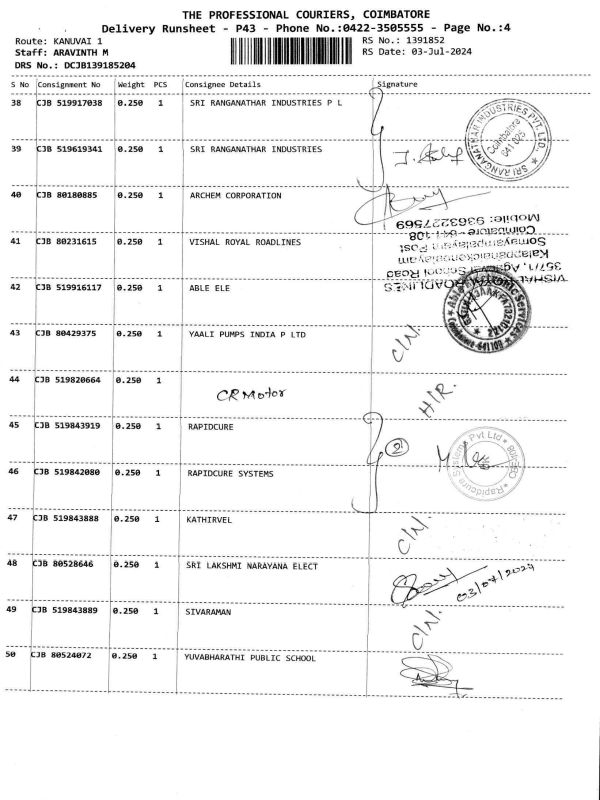 THE PROFESSIONAL COURIERS, COIMBATORE
Delivery Runsheet - P43 - Phone No.:0422-3505555 - Page No.:4
Route: KANUVAI 1 RS No.: 1391852
Staff: ARAVINTH M RS Date: 03-Jul-2024
DRS No.: DCJB139185204
S No Consignment No Weight PCS Consignee Details Signature
38 CJB 519917038 0.250 1 SRI RANGANATHAR INDUSTRIES P L
SRI RANGANATHAR INDUSTRIES PVT. LTD.
Coimbatore
641 025
39 CJB 519619341 0.250 1 SRI RANGANATHAR INDUSTRIES
40 CJB 80180885 0.250 1 ARCHEM CORPORATION
41 CJB 80231615 0.250 1 VISHAL ROYAL ROADLINES
VISHAL ROYAL ROADLINES
357/1, Agarwal School Road
Kalappanaickenpalayam
Somayampalayam Post
Coimbatore - 641 108
Mobile: 9363227569
42 CJB 519916117 0.250 1 ABLE ELE
43 CJB 80429375 0.250 1 YAALI PUMPS INDIA P LTD C/N.
44 CJB 519820664 0.250 1 CR Motor H/R.
45 CJB 519843919 0.250 1 RAPIDCURE 2
Rapidcure Systems Pvt Ltd
46 CJB 519842080 0.250 1 RAPIDCURE SYSTEMS
47 CJB 519843888 0.250 1 KATHIRVEL C/N.
48 CJB 80528646 0.250 1 SRI LAKSHMI NARAYANA ELECT 03/07/2024
49 CJB 519843889 0.250 1 SIVARAMAN C/N.
50 CJB 80524072 0.250 1 YUVABHARATHI PUBLIC SCHOOL